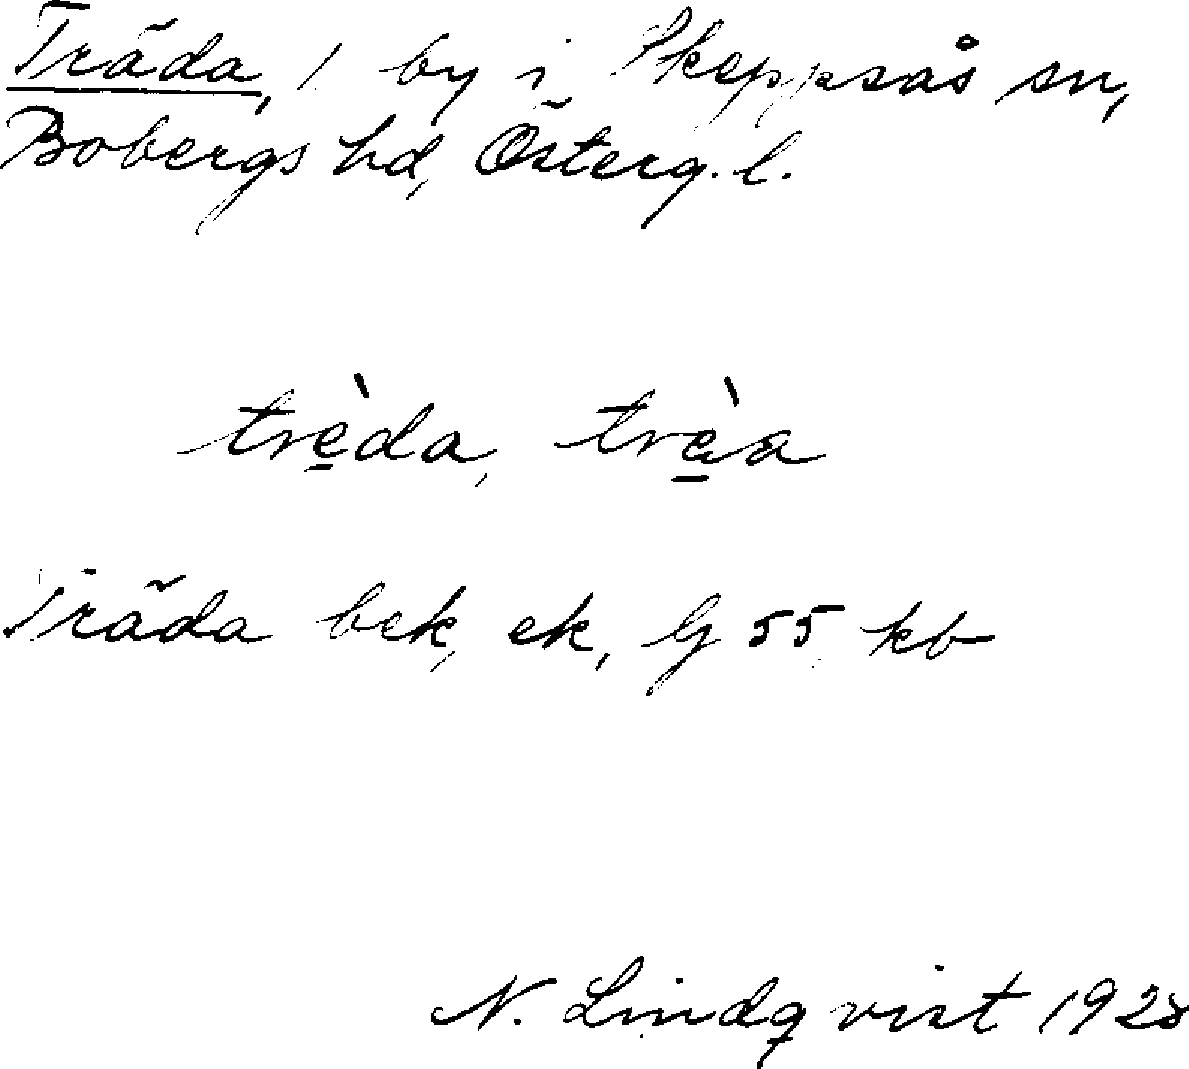 Träda, / by i Skeppsås sn,
Bobergs hd, Österg. l.
trè̠da, trè̠a
Träda bek, ek, G 55 kb
N. Lindqvist 1928